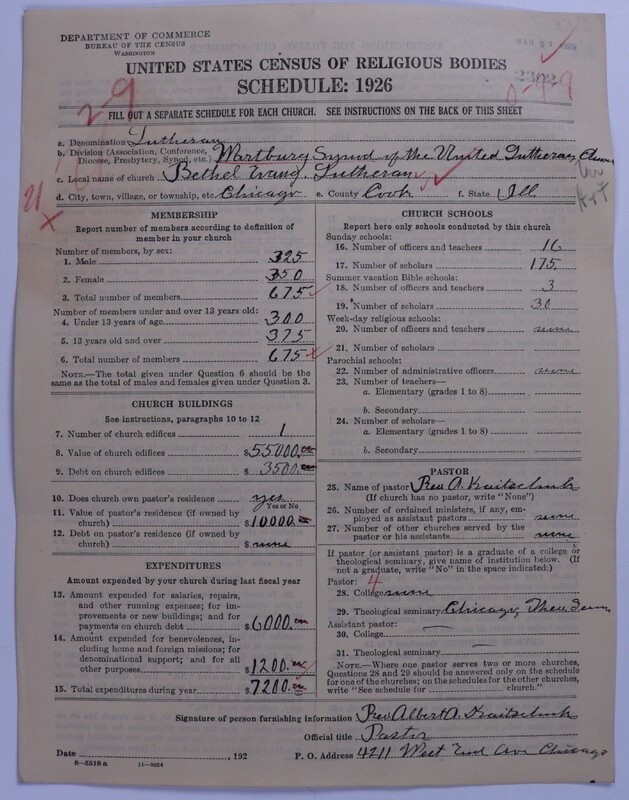 DEPARTMENT OF COMMERCE
BUREAU OF THE CENSUS
WASHINGTON
UNITED STATES CENSUS OF RELIGIOUS BODIES
SCHEDULE: 1926
2302
0-9-9
2-9
FILL OUT A SEPARATE SCHEDULE FOR EACH CHURCH. SEE INSTRUCTIONS ON THE BACK OF THIS SHEET
a. Denomination Lutheran
b. Division (Association, Conference, Diocese, Presbytery, Synod, etc.) Wartburg Synod of the United Lutheran Church
c. Local name of church Bethel Evang. Lutheran
d. City, town, village, or township, etc. Chicago e. County Cook f. State Ill
21
MEMBERSHIP
Report number of members according to definition of
member in your church
Number of members, by sex:
1. Male 325
2. Female 350
3. Total number of members 675
Number of members under and over 13 years old:
4. Under 13 years of age 300
5. 13 years old and over 375
6. Total number of members 675
NOTE.—The total given under Question 6 should be
same as the total of males and females given under Question 3.
CHURCH BUILDINGS
See instructions, paragraphs 10 to 12
7. Number of church edifices 1
8. Value of church edifices $55000.00
9. Debt on church edifices $3500.00
10. Does church own pastor's residence yes
Yes or No
11. Value of pastor's residence (if owned by
church) $10000.00
12. Debt on pastor's residence (if owned by
church) $none
EXPENDITURES
Amount expended by your church during last fiscal year
13. Amount expended for salaries, repairs,
and other running expenses; for im-
provements or new buildings; and for
payments on church debt $6000.00
14. Amount expended for benevolences, in-
cluding home and foreign missions; for
denominational support; and for all
other purposes $1200.00
15. Total expenditures during year $7200.00
CHURCH SCHOOLS
Report here only schools conducted by this church
Sunday schools:
16. Number of officers and teachers 16
17. Number of scholars 175
Summer vacation Bible schools:
18. Number of officers and teachers 3
19. Number of scholars 30
Week-day religious schools:
20. Number of officers and teachers none
21. Number of scholars
Parochial schools:
22. Number of administrative officers none
23. Number of teachers—
a. Elementary (grades 1 to 8)
b. Secondary
24. Number of scholars—
a. Elementary (grades 1 to 8)
b. Secondary
PASTOR
25. Name of pastor Rev A. Kaitschuk
(If church has no pastor, write "None")
26. Number of ordained ministers, if any, em-
ployed as assistant pastors none
27. Number of other churches served by the
pastor or his assistants none
If pastor (or assistant pastor) is a graduate of a college or
theological seminary, give name of institution below. (If
not a graduate, write "No" in the space indicated:)
Pastor: 4
28. College none
29. Theological seminary Chicago, Theo. Sem
Assistant pastor:
30. College —
31. Theological seminary —
NOTE.—Where one pastor serves two or more churches,
Questions 28 and 29 should be answered only on the schedule
for one of the churches; on the schedules for the other churches,
write "See schedule for church."
Signature of person furnishing information Rev Albert A. Kaitschuk
Official title Pastor
Date , 192 P. O. Address 4211 West End Ave Chicago
8—5518 a 11—9054